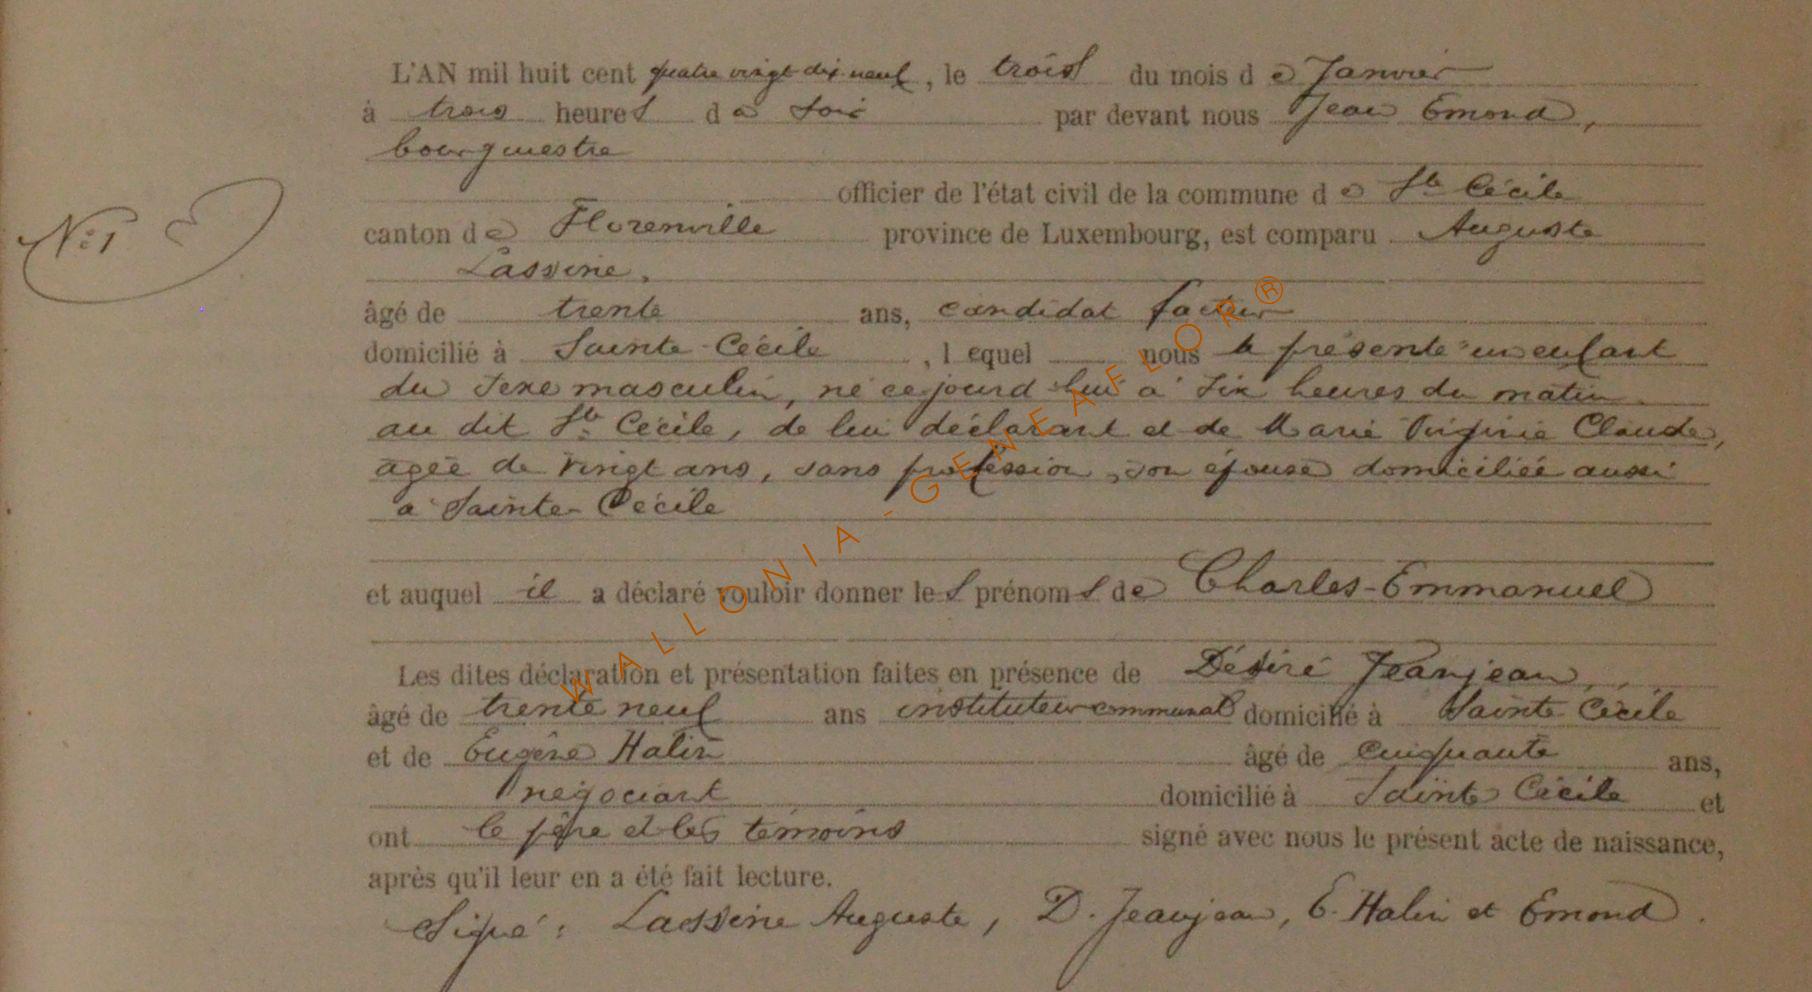 L'AN mil huit cent quatre vingt-dix-neuf, le trois du mois de Janvier
à trois heures du soir par devant nous Jean Emond,
bourgmestre
officier de l'état civil de la commune de Ste Cécile
N° 1
canton de Florenville province de Luxembourg, est comparu Auguste
Lassine,
âgé de trente ans, candidat facteur
domicilié à Sainte-Cécile, lequel nous a présenté un enfant
du sexe masculin, né ce jourd'hui à six heures du matin
au dit Ste Cécile, de lui déclarant et de Marie Virginie Claude,
agée de vingt ans, sans profession, son épouse domiciliée aussi
à Sainte-Cécile
et auquel il a déclaré vouloir donner les prénoms de Charles-Emmanuel
Les dites déclaration et présentation faites en présence de Désiré Jeanjean,
âgé de trente neuf ans instituteur communal domicilié à Sainte Cécile
et de Eugène Halin âgé de cinquante ans,
négociant domicilié à Sainte Cécile et
ont le père et les témoins signé avec nous le présent acte de naissance,
après qu'il leur en a été fait lecture.
Signé : Lassine Auguste, D. Jeanjean, E. Halin et Emond.
WALLONIA-GENEAFLOR®